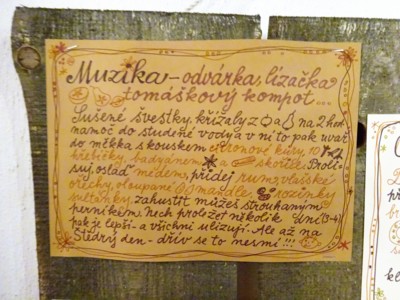 Muzika - odvárka, lízačka
tomáškový kompot...
Sušené švestky, křížaly z a na 2 hod.
namoč do studené vody a v ní to pak uvař
do měkka s kouskem citronové kůry, 10
hřebíčky, badyánem a skořice. Proli-
suj, oslaď medem, přidej rum, vlašské
ořechy, oloupané mandle, rozinky
sultánky, zahustit můžeš strouhaným
perníkem. Nech proležet několik dní (3-4)
pak je lepší - a všichni ulízují. Ale až na
Štědrý den - dřív se to nesmí !!!